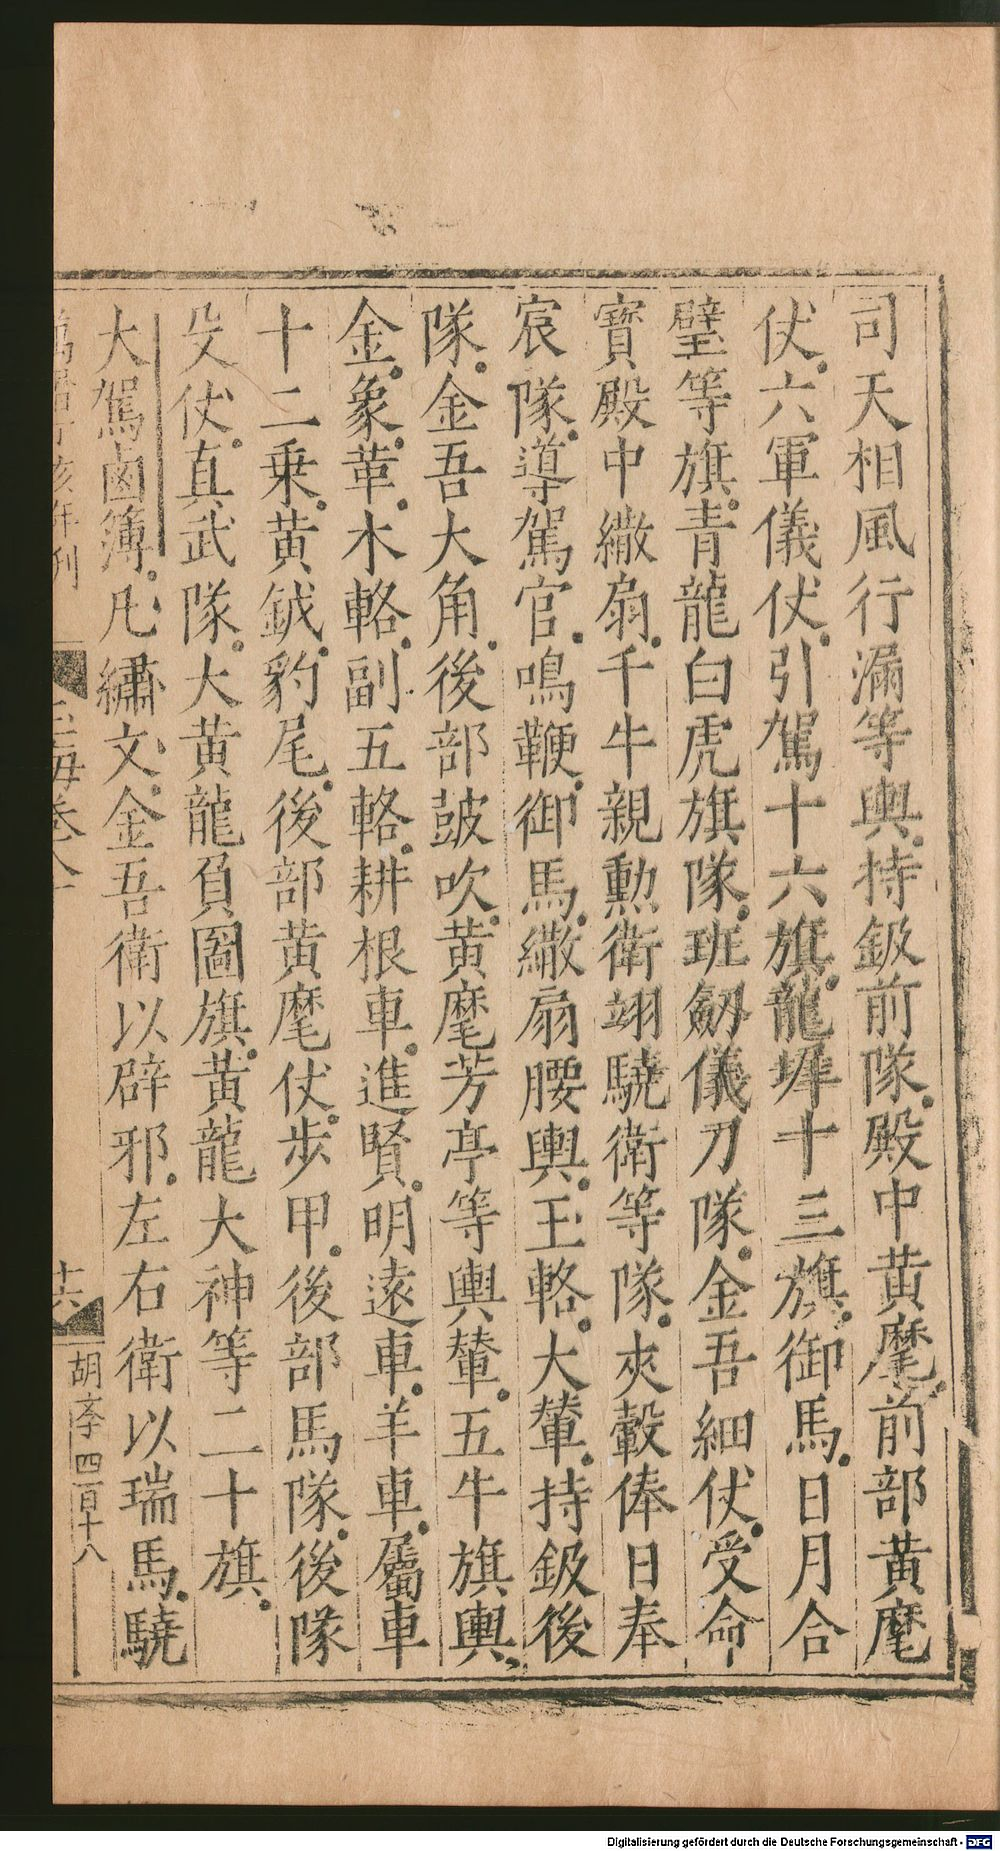 司天相風行漏等輿持鈒前隊殿中黄麾前部黄麾
仗六軍儀仗引駕十六旗龍墀十三旗御馬日月合
璧等旗青龍白虎旗隊班劒儀刀隊金吾細仗受命
寳殿中繖扇千牛親勳衛翊驍衛等隊夾轂俸日奉
宸隊導駕官鳴鞭御馬繖扇腰輿玉輅大輦持鈒後
隊金吾大角後部皷吹黄麾芳亭等輿輦五牛旗輿
金象革木輅副五輅耕根車進賢明逺車羊車屬車
十二乗黄鉞豹尾後部黄麾仗歩甲後部馬隊後隊
殳仗真武隊大黄龍負圖旗黄龍大神等二十旗
大駕鹵簿凡繡文金吾衛以辟邪左右衛以瑞馬驍
亥年刋
玉海卷八十
十六
胡 四百十八
Digitalisierung gefördert durch die Deutsche Forschungsgemeinschaft - DFG